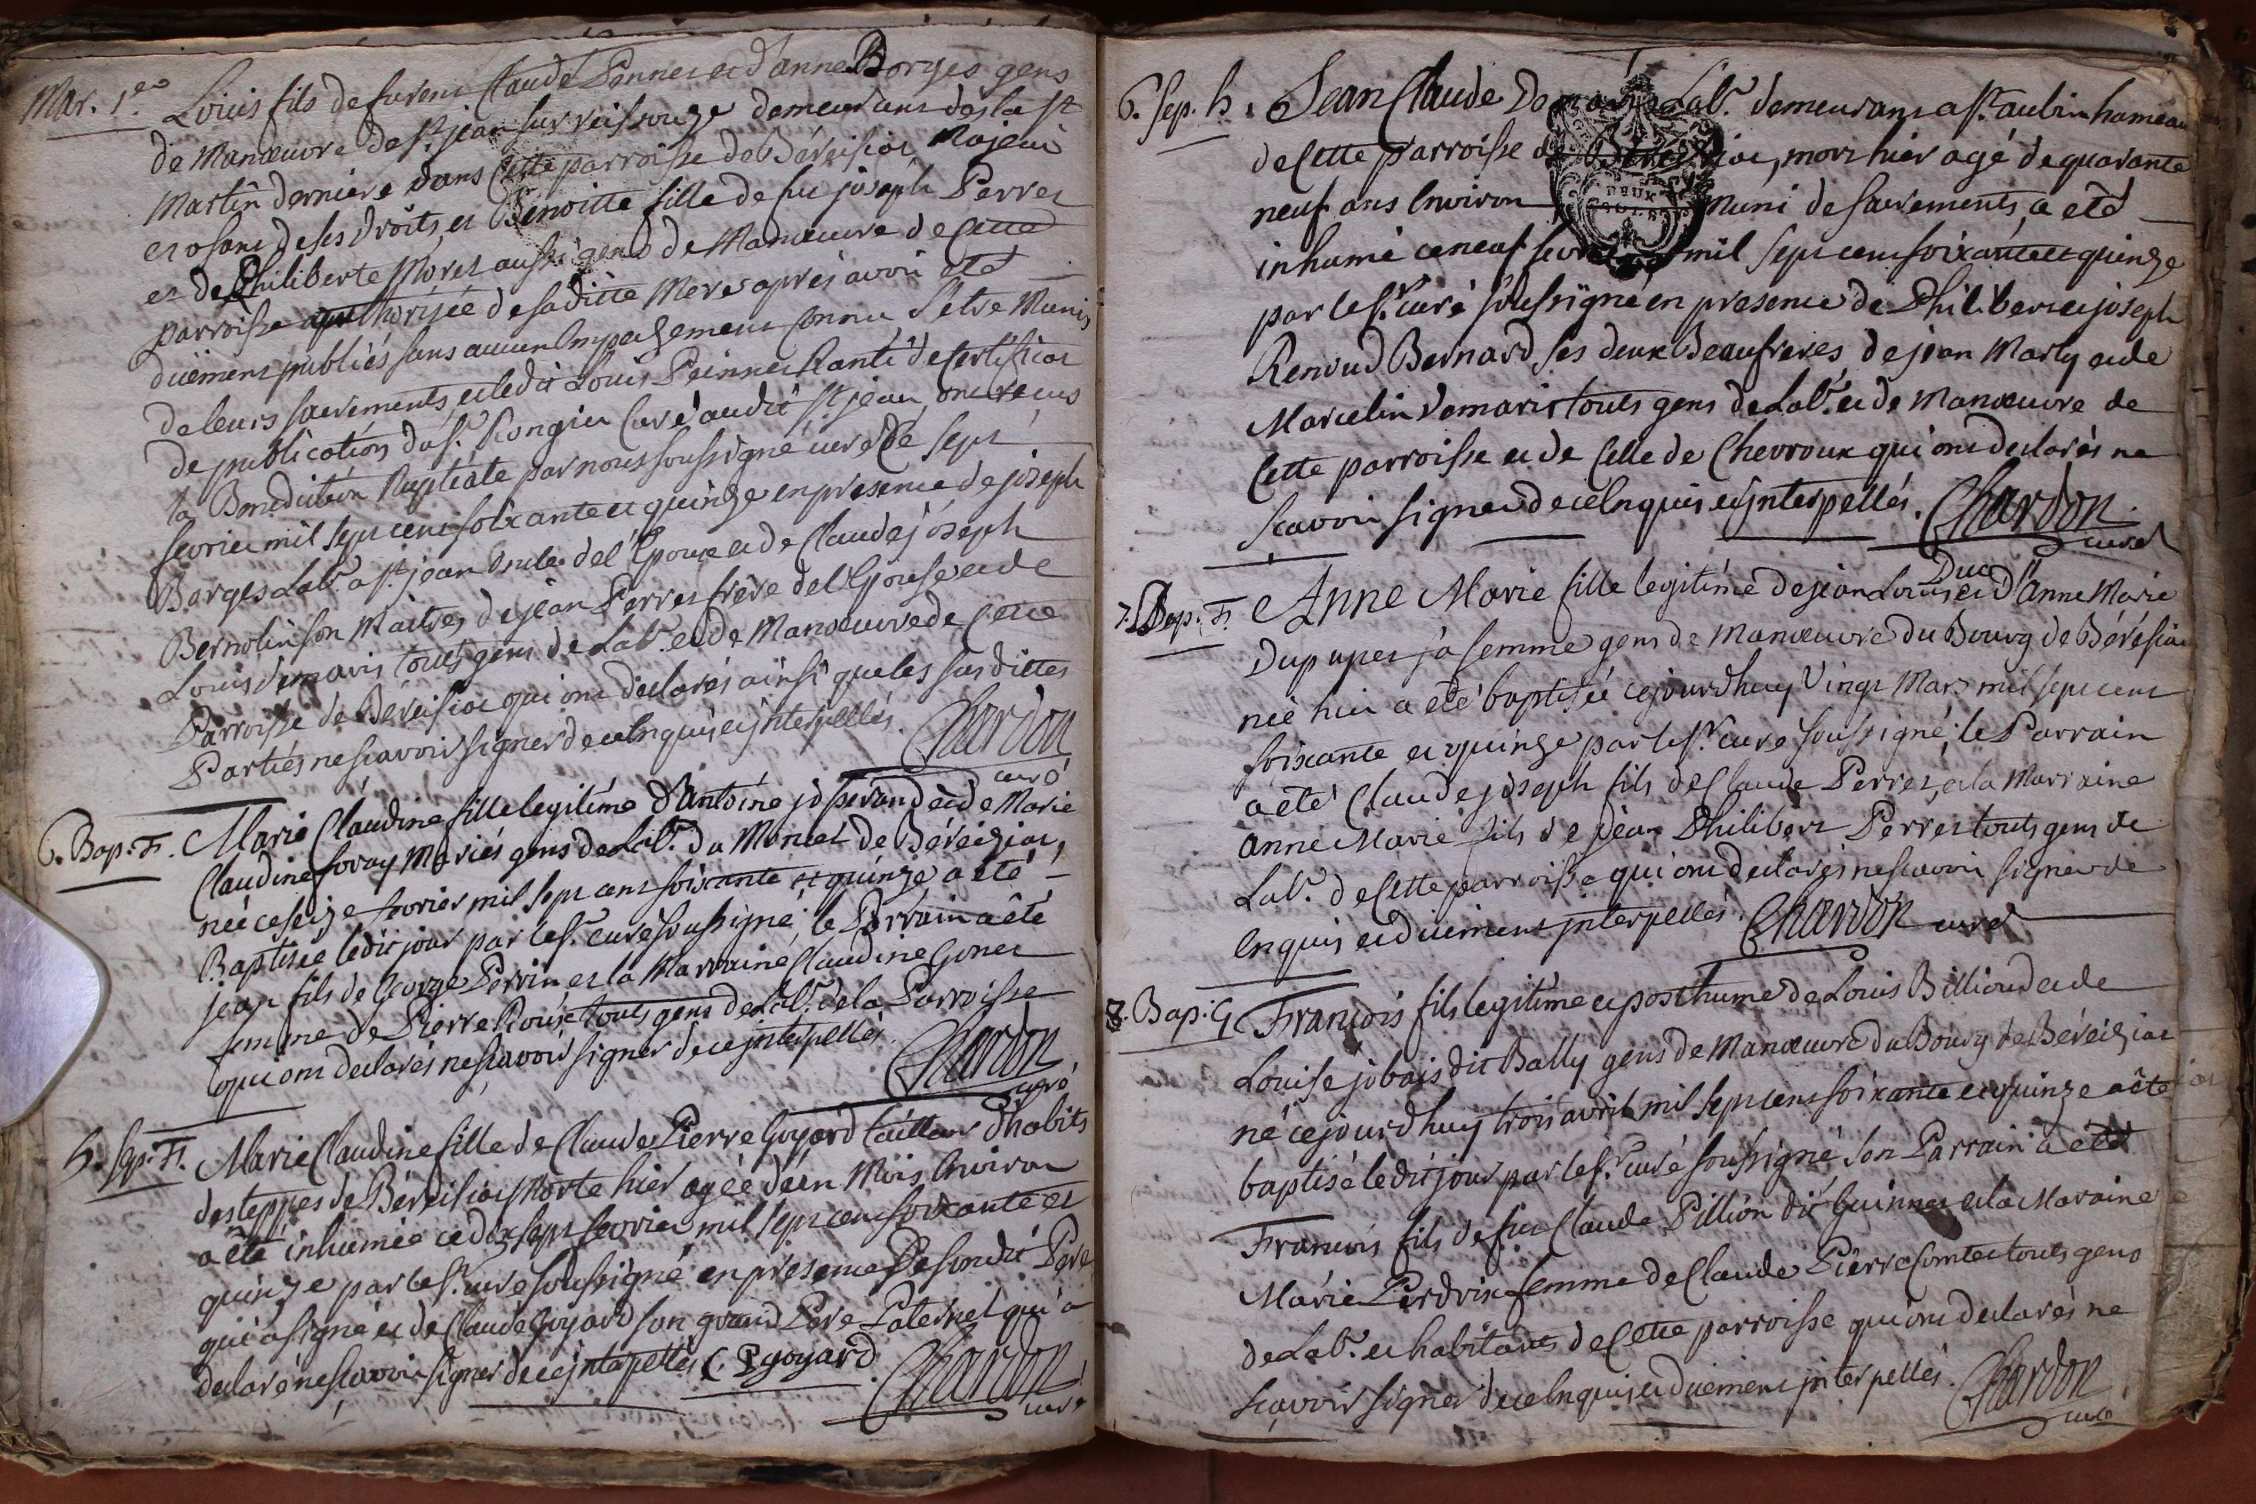 Mar. 1er Louis fils de furent Claude Pennet et d'anne Borges gens
de Manœuvre de st jean sur reissouze demeurant des la st
Martin derniere dans Cette parroisse de Béreisiat Majeur
et osant de ses droits, et Benoitte fille de feu joseph Perret
et de Philiberte Moret aussi gens de Manœuvre de Cette
parroisse authorisée de sa ditte Mere après avoir été
duëment publiés sans aucun Empechement Connu S'etre Munis
de leurs sacrements, et ledit Louis Peinnet Nanti de Certificat
de publication du sr. Rongier Curé audit st jean, ont reçus
la Benediction Nuptiale par nous soussigné curé Ce sept
fevrier mil sept cent soixante et quinze en presence de joseph
Borges Labr. a st jean oncle de l'Epoux et de Claude joseph
Bernolin son Maitre, de jean Perret frère de l'Epouse et de
Louis demaris touts gens de Labr. et de Manœuvre de Cette
Parroisse de Béreisiat qui ont declarés ainsi que les sus dittes
Parties ne scavoir signer de ce Enquis et interpellés. Chardon
curé
6. Bap. F. Marie Claudine fille legitime d'Antoine josserand et de Marie
Claudine Favay Mariés gens de Labr. du Montet de Béreiziat,
née ce seize fevrier mil sept cent soixante et quinze a été
Baptisée ledit jour par le sr. curé soussigné; le Parrain a été
jean fils de George Perrin et la Marraine Claudine Gonet
femme de Pierre Rousé touts gens de Labr. de la Parroisse
qui ont declarés ne scavoir signer de ce interpellés. Chardon
curé
5. sep. F. Marie Claudine fille de Claude Pierre Goyard tailleur d'habits
des teppes de Béreisiat Morte hier agée d'un Mois Environ
a été inhumée ce dix sept fevrier mil sept cent soixante et
quinze par le sr. curé soussigné en présence de son dit Pere
qui a signé et de Claude Goyard son grand Pere Paternel qui a
declaré ne scavoir signer de ce interpellés C. P goyard Chardon
curé
6. sep. h. Jean Claude Labr. demeurant a st. aubin hameau
de Cette parroisse de mort hier agé de quarante
neuf ans Environ Muni de sacrements, a été
inhumé ce neuf fevrier mil sept cent soixante et quinze
par le sr. curé soussigné en presence de Philibert et joseph
Renoud Bernard ses deux Beaufreres de jean Marly et de
Marcelin demaris touts gens de Labr. et de Manœuvre de
Cette parroisse et de Celle de Chevroux qui ont declarés ne
scavoir signer de ce Enquis et interpellés. Chardon
curé
7. Bap. F. Anne Marie fille legitime de jean Louis Duc et d'Anne Marie
Dupupet sa femme gens de Manœuvre du Bourg de Béréisiat
née hier a été baptisée ce jourdhuy Vingt Mars mil sept cent
soixante et quinze par le sr. curé soussigné; le Parrain
a été Claude joseph fils de Claude Perret, et la Marraine
Anne Marie fils de Jean Philibert Perret touts gens de
Labr. de Cette parroisse qui ont declarés ne scavoir signer de
Enquis et duement interpellés. Chardon curé
8. Bap. G François fils legitime et posthume de Louis Billioud et de
Louise jobais dit Bally gens de Manœuvre du Bourg de Béréiziat
né ce jourdhuy trois avril mil sept cent soixante et quinze a été
baptisé ledit jour par le sr. curé soussigné son Parrain a été
François fils de feu Claude Pillion dit Guinnet et la Maraine
Marie Perdrix femme de Claude Pierre Comte touts gens
de Labr. et habitants de Cette parroisse qui ont declarés ne
scavoir signer de ce Enquis et duement interpellés. Chardon
curé